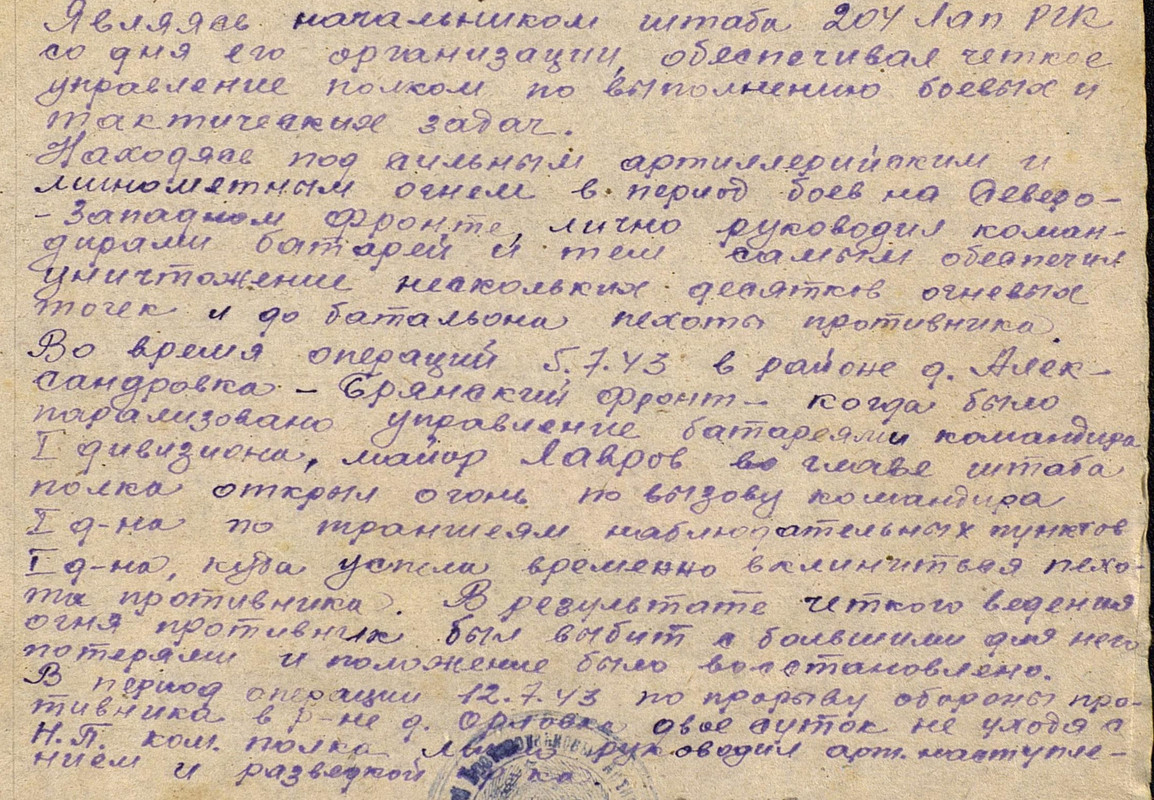 Являясь начальником штаба 204 Лап РГК
со дня его организации, обеспечивал четкое
управление полком по выполнению боевых и
тактических задач.
Находясь под сильным артиллерийским и
минометным огнем в период боев на Северо-
-Западном фронте, лично руководил коман-
дирами батарей и тем самым обеспечил
уничтожение нескольких десятков огневых
точек и до батальона пехоты противника
Во время операций 5.7.43 в районе д. Алек-
сандровка – Брянский фронт – когда было
парализовано управление батареями командира
I дивизиона, майор Лавров во главе штаба
полка открыл огонь по вызову командира
I д-на по траншеям наблюдательных пунктов
I д-на, куда успела временно вклиниться пехо-
та противника. В результате четкого ведения
огня противник был выбит с большими для него
потерями и положение было восстановлено.
В период операции 12.7.43 по прорыву обороны про-
тивника в р-не д. Орловка двое суток не уходя с
Н.П. ком. полка руководил арт. наступле-
нием и разведкой